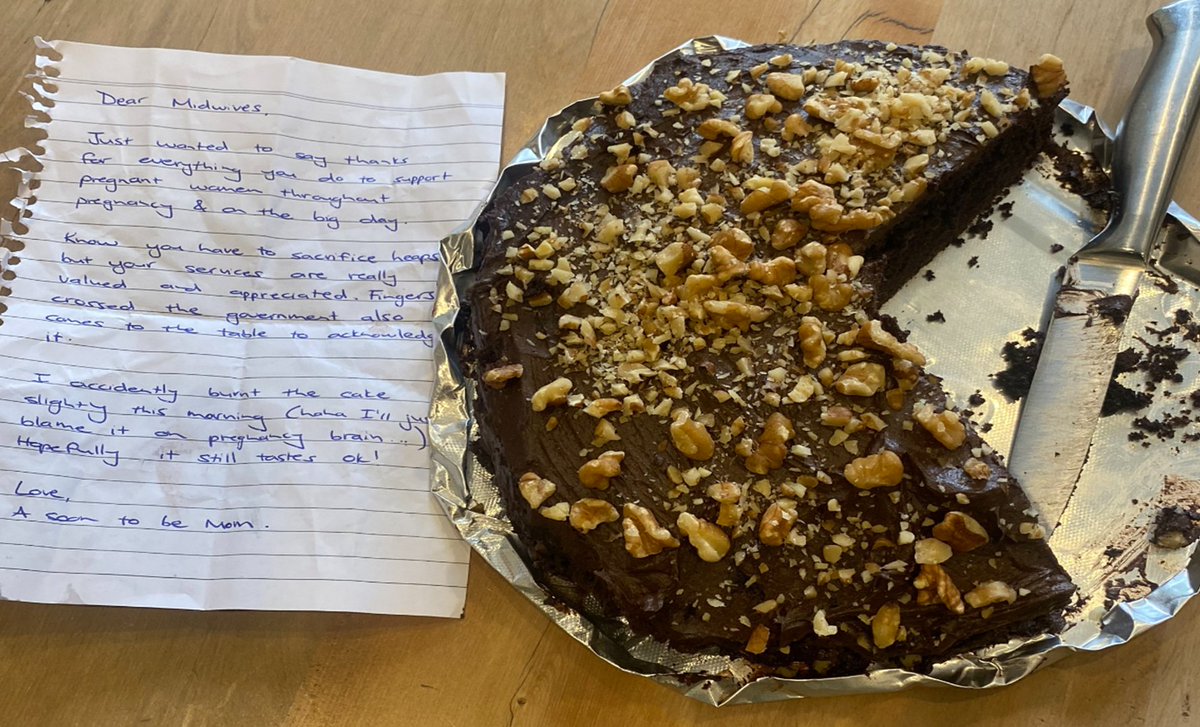 Dear Midwives,
Just wanted to say thanks
for everything you do to support
pregnant women throughout
pregnancy & on the big day.
Know you have to sacrifice heaps
but your services are really
valued and appreciated. Fingers
crossed the government also
comes to the table to acknowledg
it.
I accidently burnt the cake
slightly this morning (haha I'll ju
blame it on pregnancy brain...)
Hopefully it still tastes ok!
Love,
A soon to be Mom.